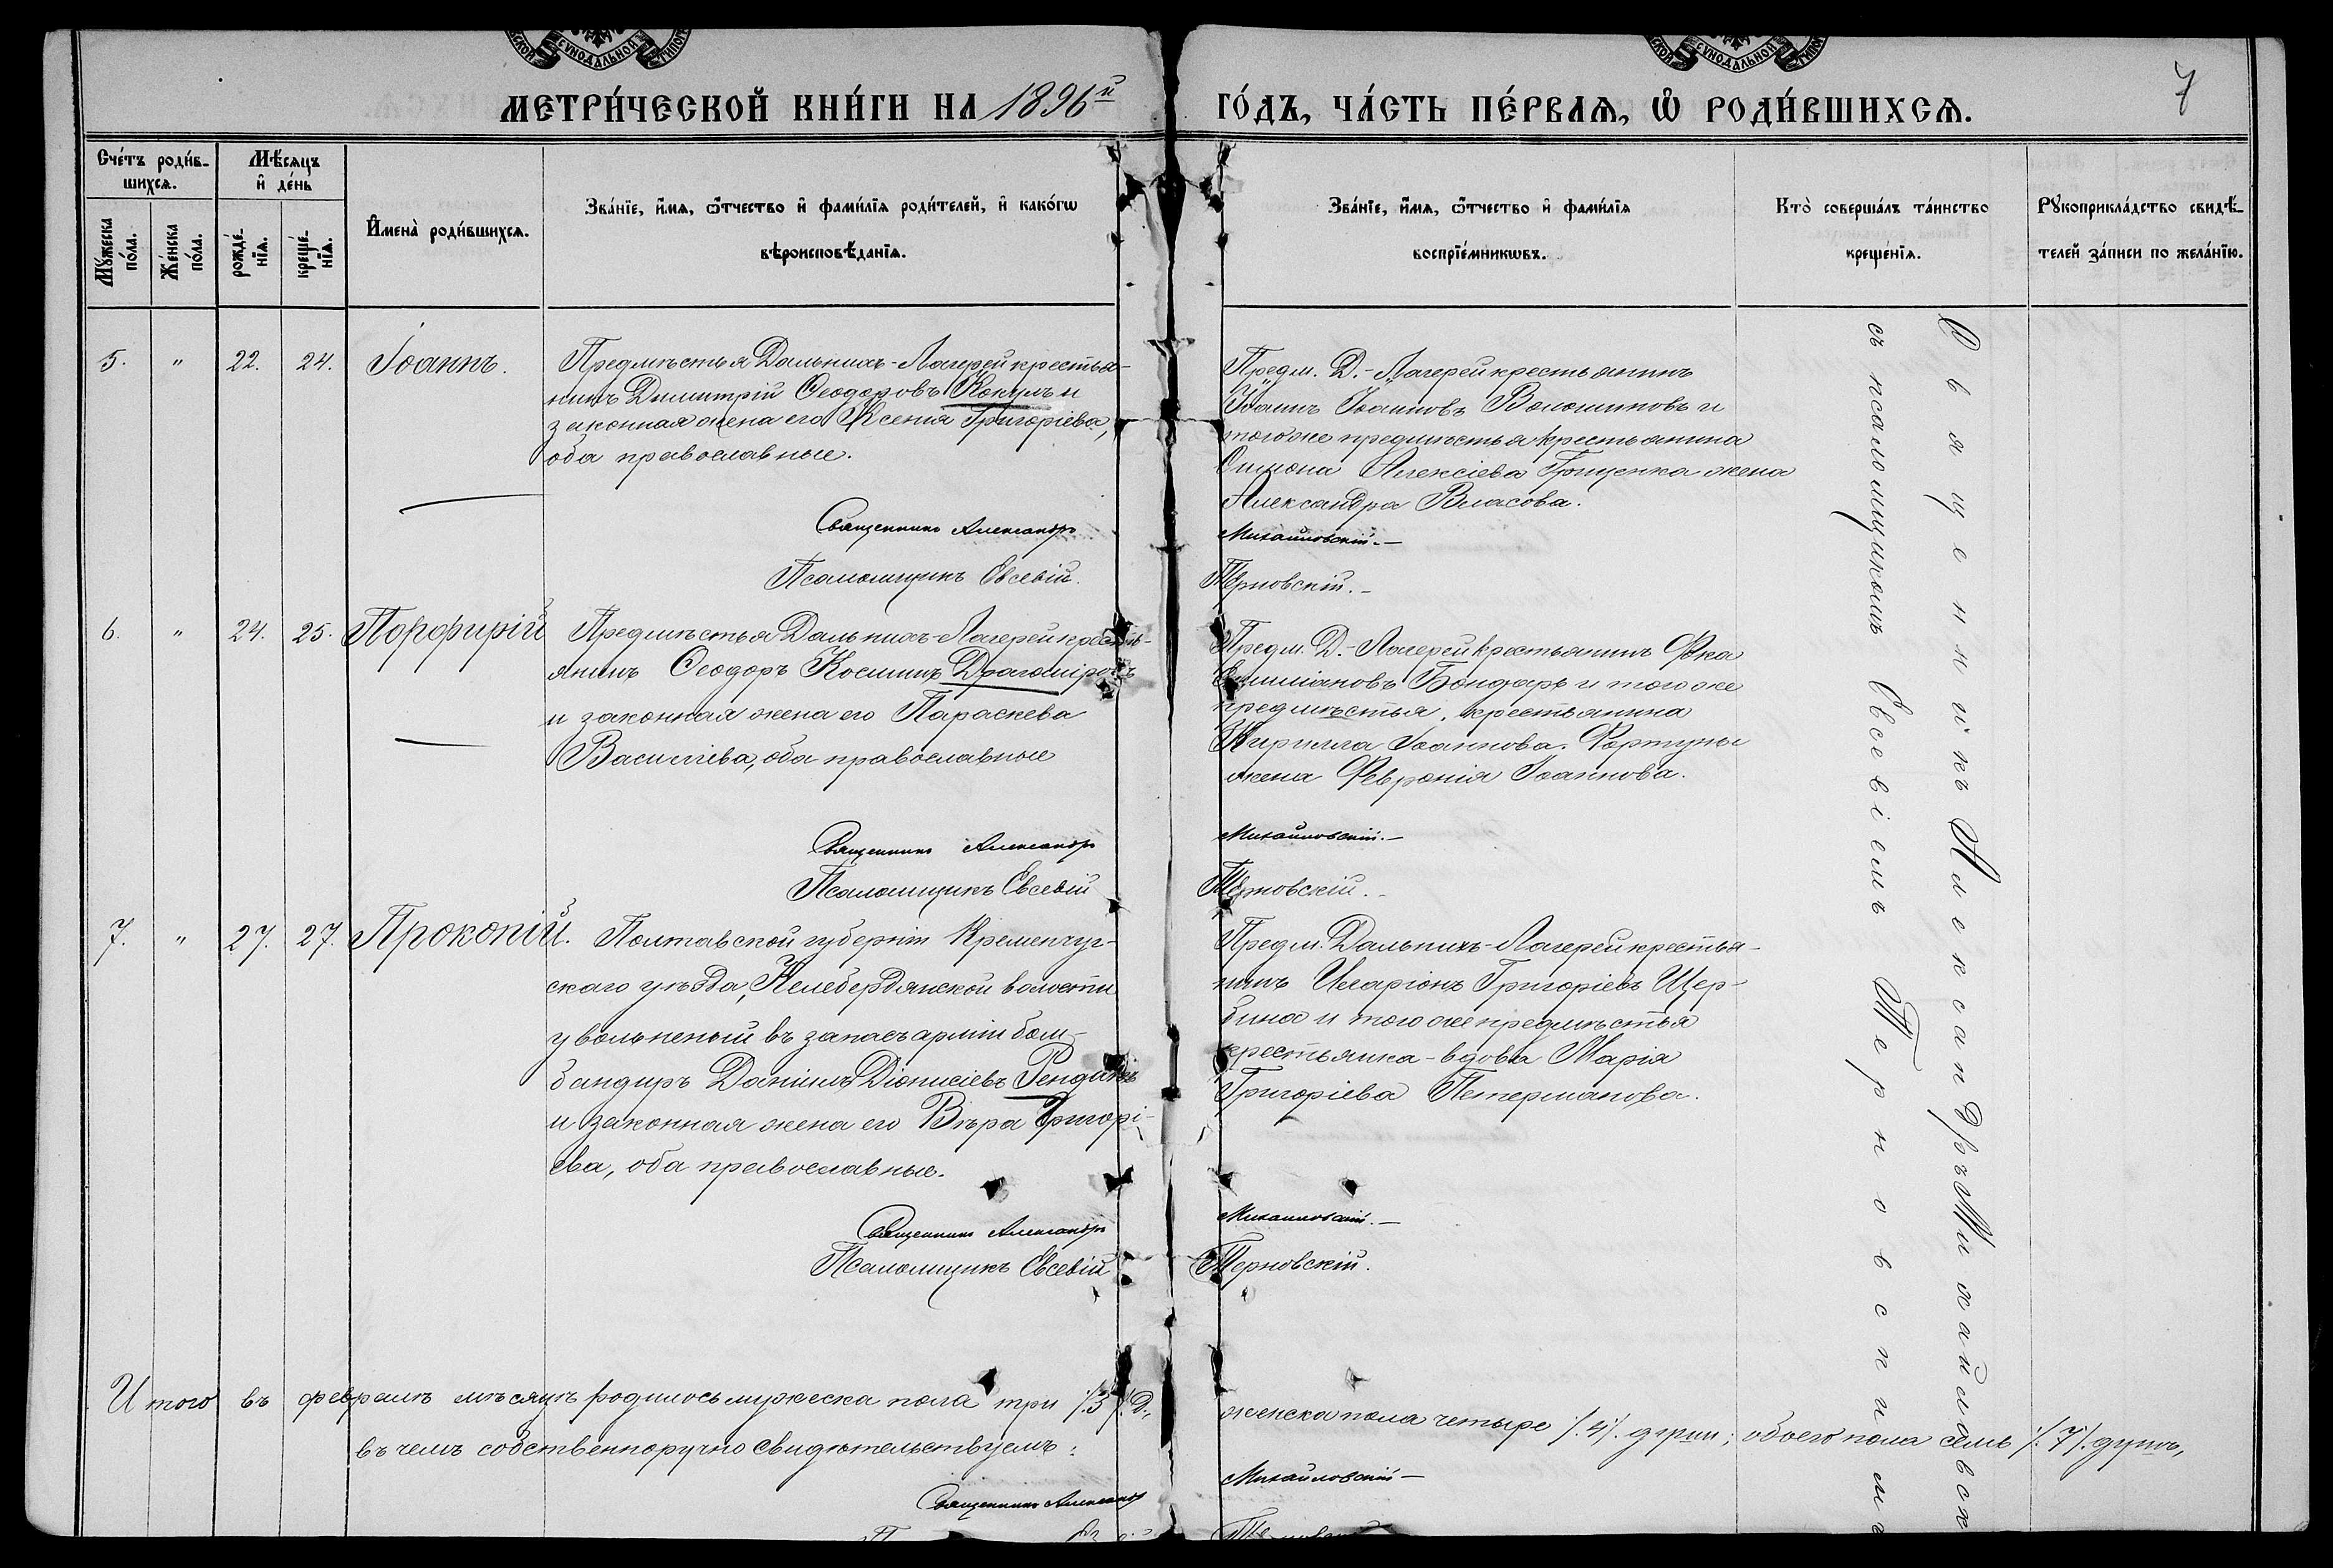 СѴНОДАЛЬНОЙ
СѴНОДАЛЬНОЙ
МЕТРИ́ЧЕСКОЙ КНИ́ГИ НА 1896й ГО́ДЪ, ЧА́СТЬ ПЕ́РВАѦ, Ѿ РОДИ́ВШИХСѦ.
7
Сче́тъ роди́в-
шихсѧ.
Мѣ́сѧцъ
и҆ де́нь
Мꙋ́жеска по́ла.
Же́нска по́ла.
рожде́-нїѧ.
креще́-нїѧ.
И҆мена̀ роди́вшихсѧ.
Зва́нїе, и҆́мѧ, ѻ҆́тчество и҆ фами́лїѧ роди́телей, и҆ како́гѡ
вѣроисповѣ́данїѧ.
Зва́нїе, и҆́мѧ, ѻ҆́тчество и҆ фами́лїѧ
воспрїе́мникѡвъ.
Кто̀ соверша́лъ та́инство
креще́нїѧ.
Рꙋкоприкла́дство свидѣ́-
телей за́писи по жела́нїю.
5. " 22. 24. Іоаннъ.
Предмѣстья Дальнихъ-Лагерей крестья-
нинъ Димитрій Ѳеодоровъ Кокулъ и
законная жена его Ксенія Григоріева,
оба православные.
Священникъ Александръ
Псаломщикъ Евсевій.
Предм. Д.-Лагерей крестьянинъ
Іоаннъ Іоанновъ Волошиновъ и
того же предмѣстья крестьянина
Симона Алексіева Грищенка жена
Александра Власова.
Михайловскій.—
Терновскій.-
6. " 24. 25. Порфирій
Предмѣстья Дальнихъ-Лагерей кресть-
янинъ Ѳеодоръ Косминъ Драгоміровъ
и законная жена его Параскева
Василіева, оба православные
Священникъ Александръ
Псаломщикъ Евсевій
Предм. Д.-Лагерей крестьянинъ Фока
Бондарь и того же
предмѣстья, крестьянина
Кирилла Іоаннова Фортуны
жена Февронія Іоаннова.
Михайловскій.—
Терновскій.-
7. " 27. 27. Прокопій.
Полтавской губерніи Кременчуг-
скаго уѣзда, Келебердянской волости
увольненый въ запасъ арміи бом-
бандиръ Даніилъ Діонисіевъ
и законная жена его Вѣра Григорі-
ева, оба православные.
Священникъ Александръ
Псаломщикъ Евсевій
Предм. Дальнихъ-Лагерей крестья-
нинъ Иларіонъ Григоріевъ Щер-
бина и того же предмѣстья
крестьянка-вдова Марія
Григоріева Петерманова.
Михайловскій.—
Терновскій.
Священникъ Александръ Михайловск
съ псаломщикомъ Евсевіемъ Терновскимъ
Итого въ февралѣ мѣсяцѣ родилось мужеска пола три /.3/. д., женска пола четыре /.4/. души; обоего пола семь /.7/. душъ,
въ чемъ собственноручно свидѣтельствуемъ:
Священникъ Александр Михайловскій—